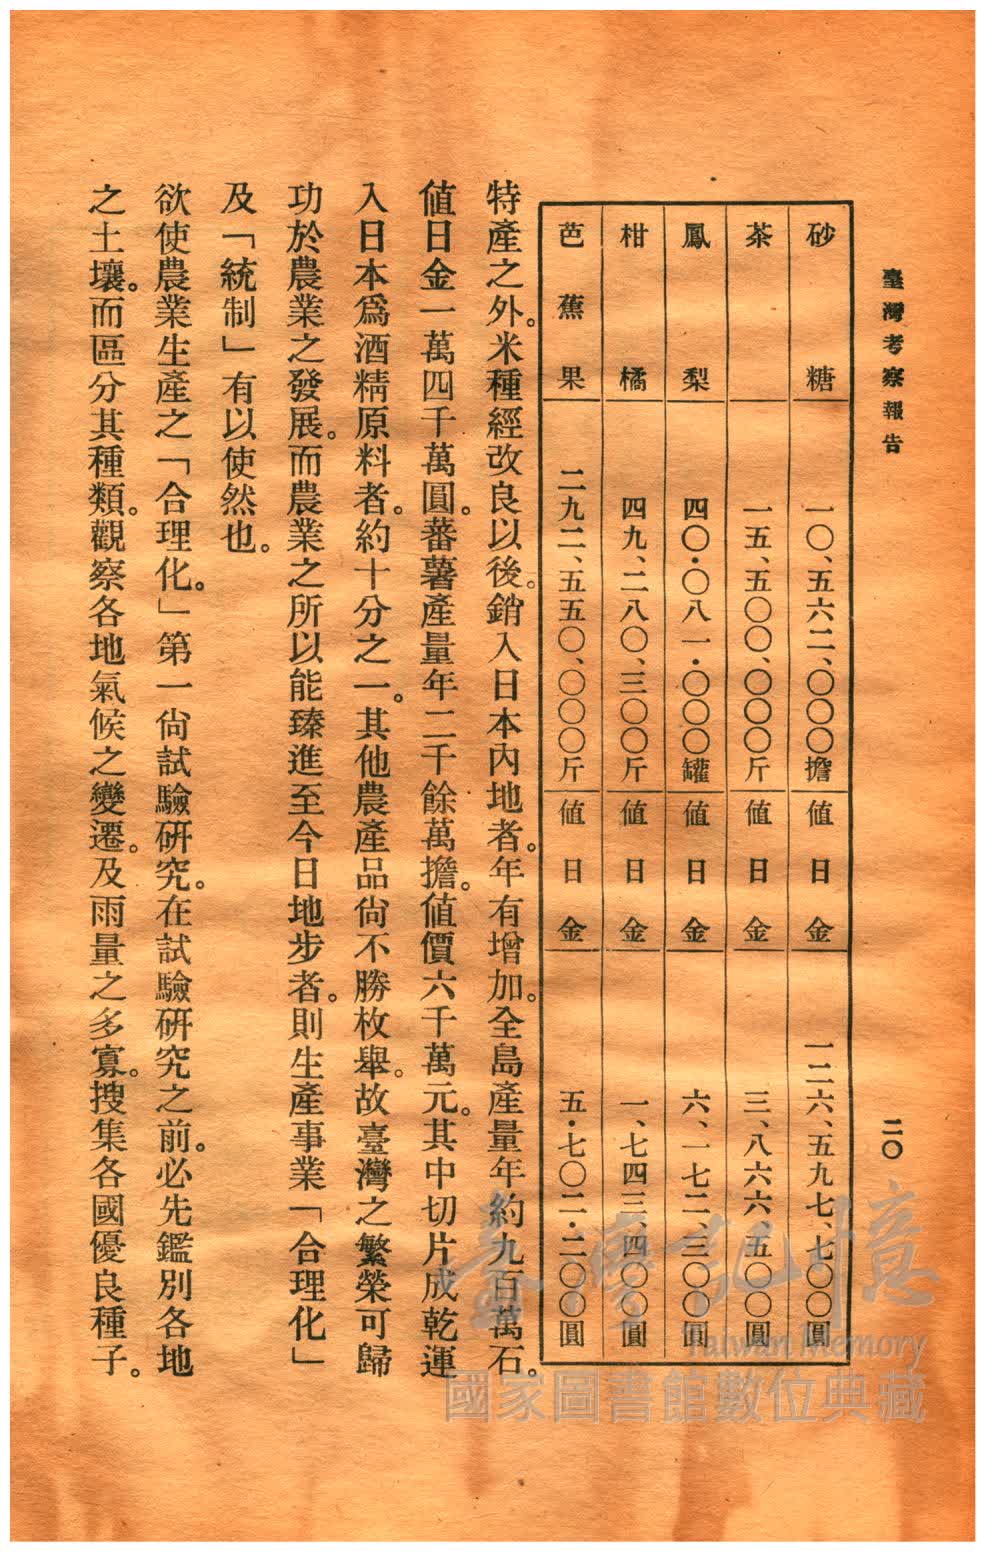 臺灣考察報告
二〇
砂糖 一〇、五六二、〇〇〇擔 値日金 一二六、五九七、七〇〇圓
茶 一五、五〇〇、〇〇〇斤 値日金 三、八六六、五〇〇圓
鳳梨 四〇・〇八一・〇〇〇罐 値日金 六、一七二、三〇〇圓
柑橘 四九、二八〇、三〇〇斤 値日金 一、七四三、四〇〇圓
芭蕉果 二九二、五五〇、〇〇〇斤 値日金 五・七〇二・二〇〇圓
特產之外。米種經改良以後。銷入日本內地者。年有增加。全島產量年約九百萬石。
値日金一萬四千萬圓。蕃薯產量年二千餘萬擔。値價六千萬元。其中切片成乾運
入日本爲酒精原料者。約十分之一。其他農產品尙不勝枚舉。故臺灣之繁榮可歸
功於農業之發展。而農業之所以能臻進至今日地步者。則生產事業「合理化」
及「統制」有以使然也。
欲使農業生產之「合理化。」第一尙試驗研究。在試驗研究之前。必先鑑別各地
之土壤。而區分其種類。觀察各地氣候之變遷。及雨量之多寡。搜集各國優良種子。
臺灣記憶
Taiwan Memory
國家圖書館數位典藏